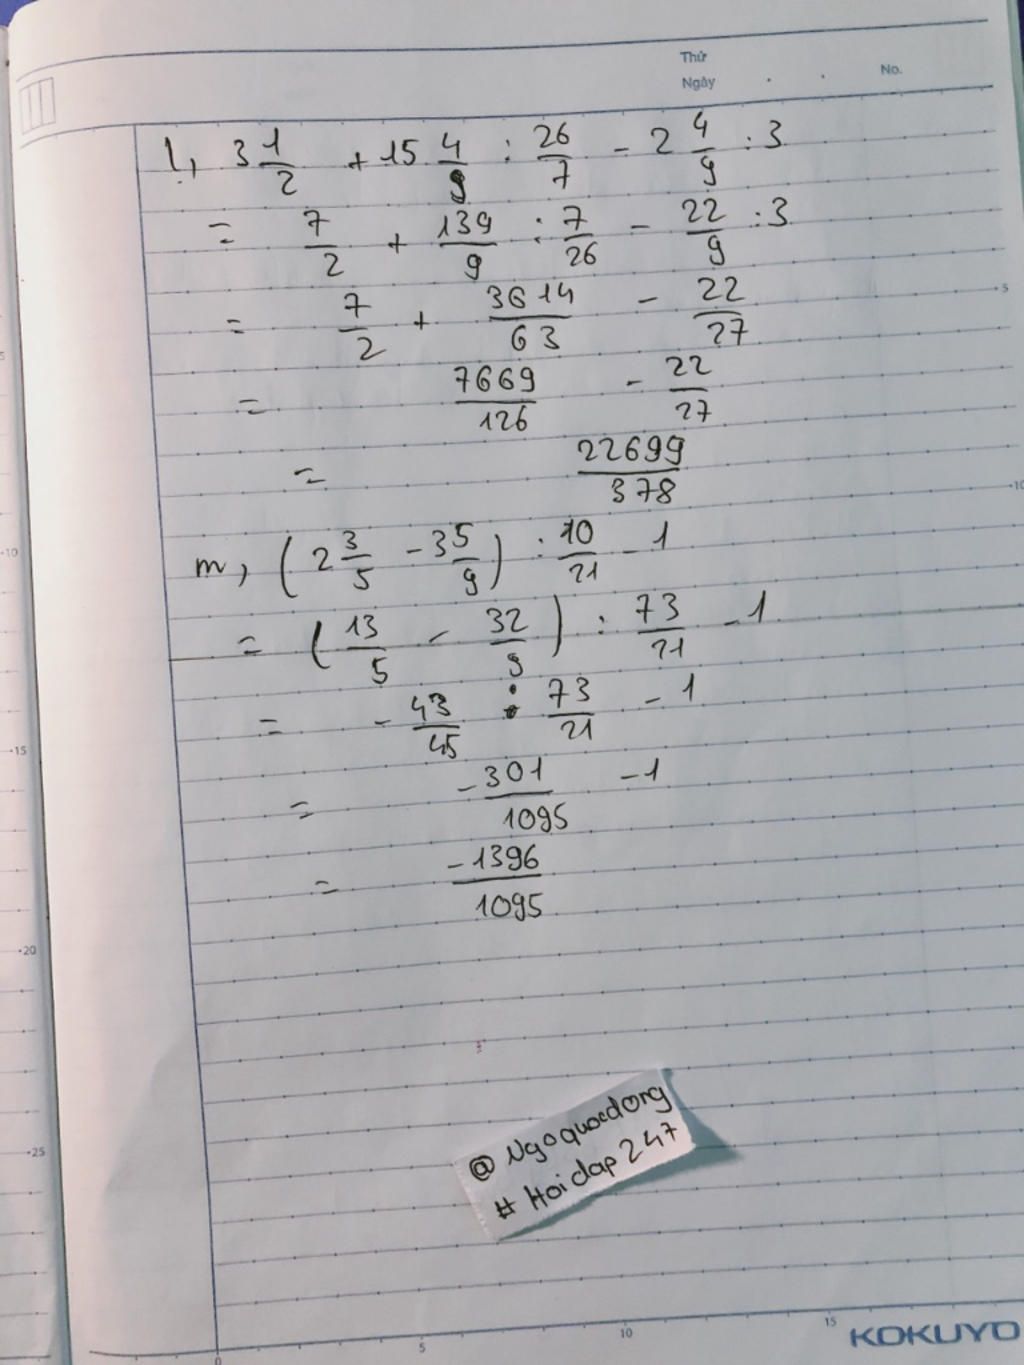 Thứ
Ngày . . No.
l, 3 1/2 + 15 4/9 : 26/7 - 2 4/9 : 3
= 7/2 + 139/9 : 7/26 - 22/9 : 3
= 7/2 + 3614/63 - 22/27
= 7669/126 - 22/27
= 22699/378
m, (2 3/5 - 3 5/9) : 10/21 - 1
= (13/5 - 32/9) : 73/21 - 1
= - 43/45 : 73/21 - 1
= -301/1095 - 1
= -1396/1095
@ Ngoquocdorg
# Hoidap247
KOKUYO